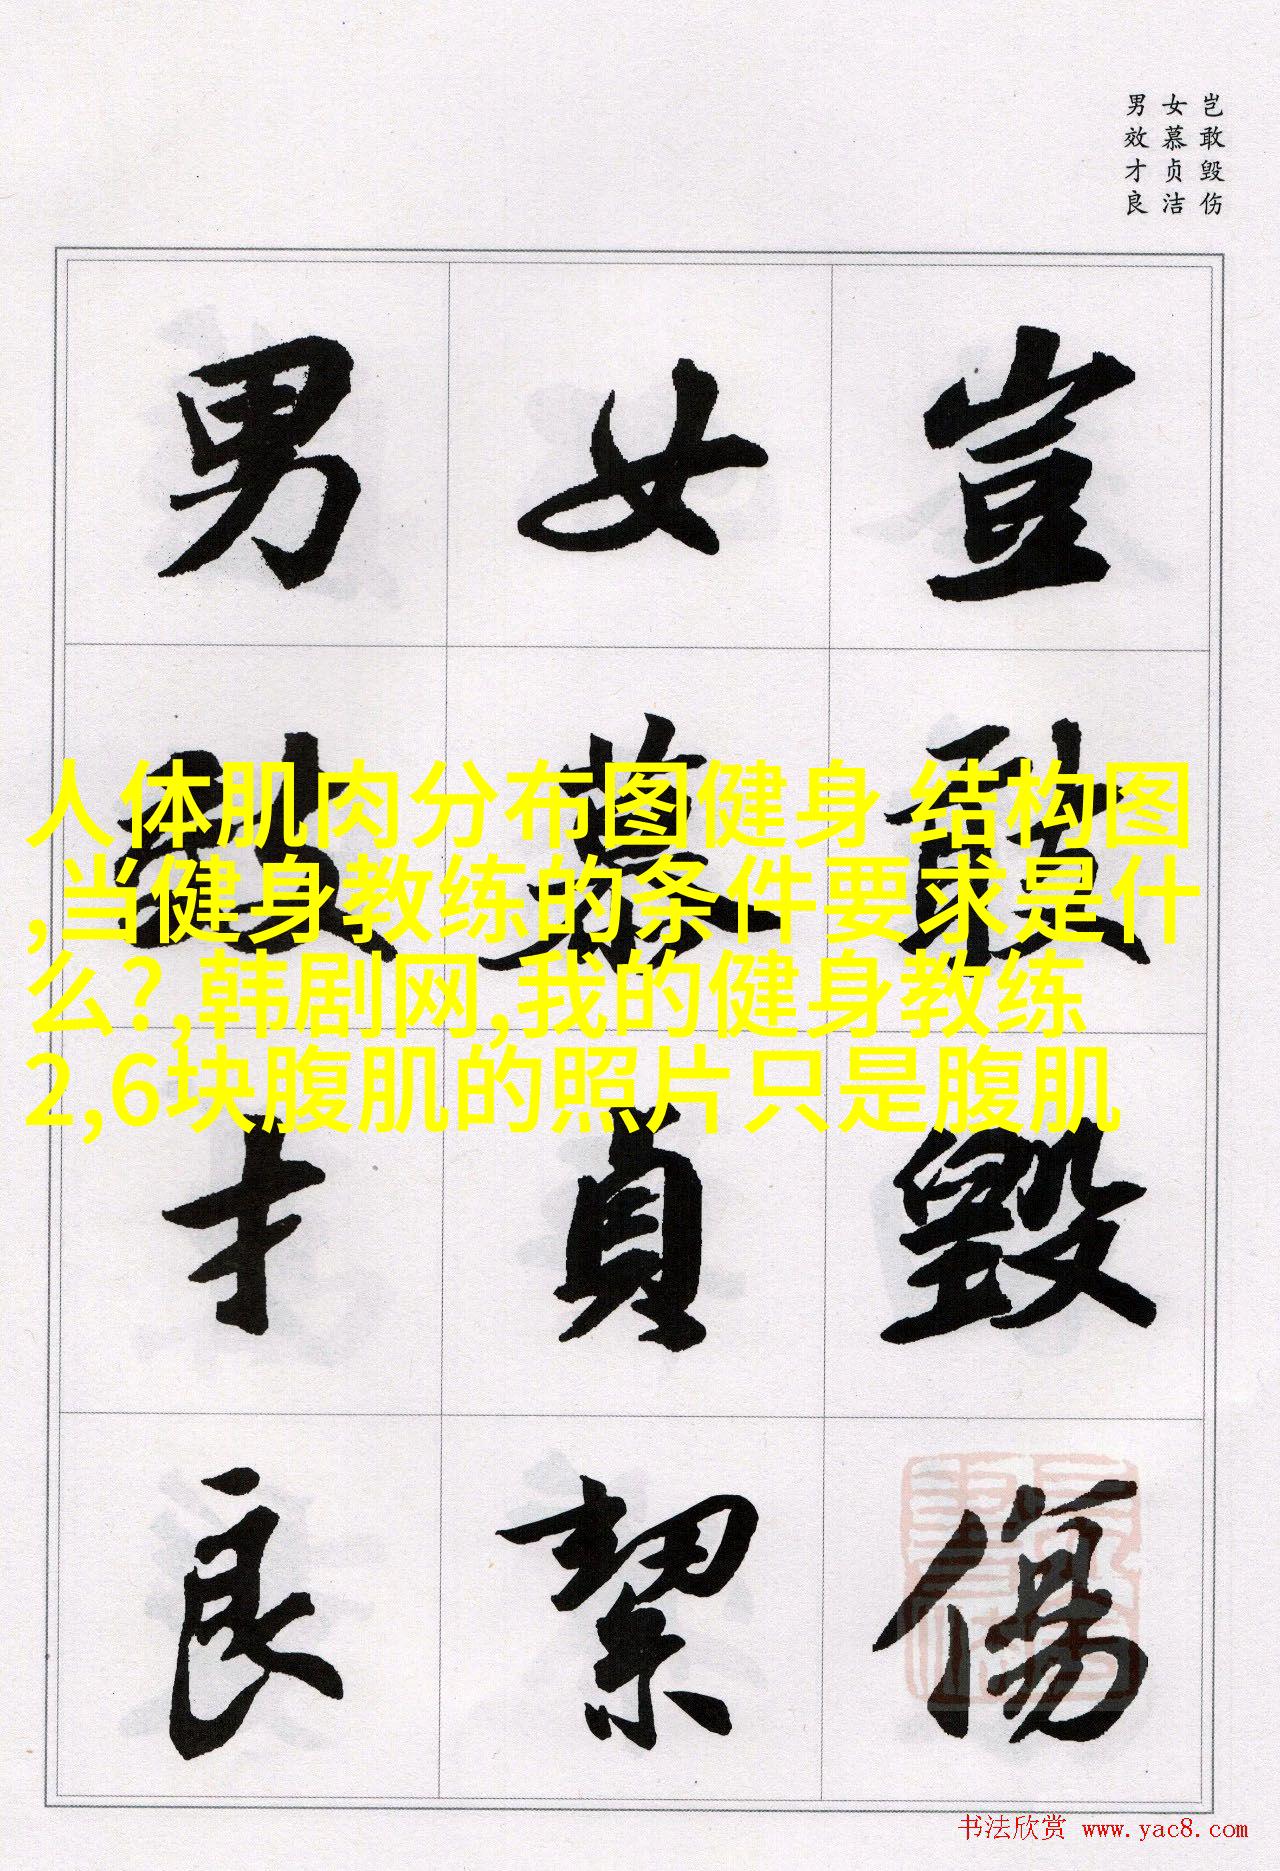 岂敢毁伤
女慕贞洁
男效才良
豈敢毀傷
女慕貞絜
男效才良
人体肌肉分布图健身 结构图
,当健身教练的条件要求是什
么?,韩剧网,我的健身教练
2,6块腹肌的照片只是腹肌
书法欣赏 www.yac8.com